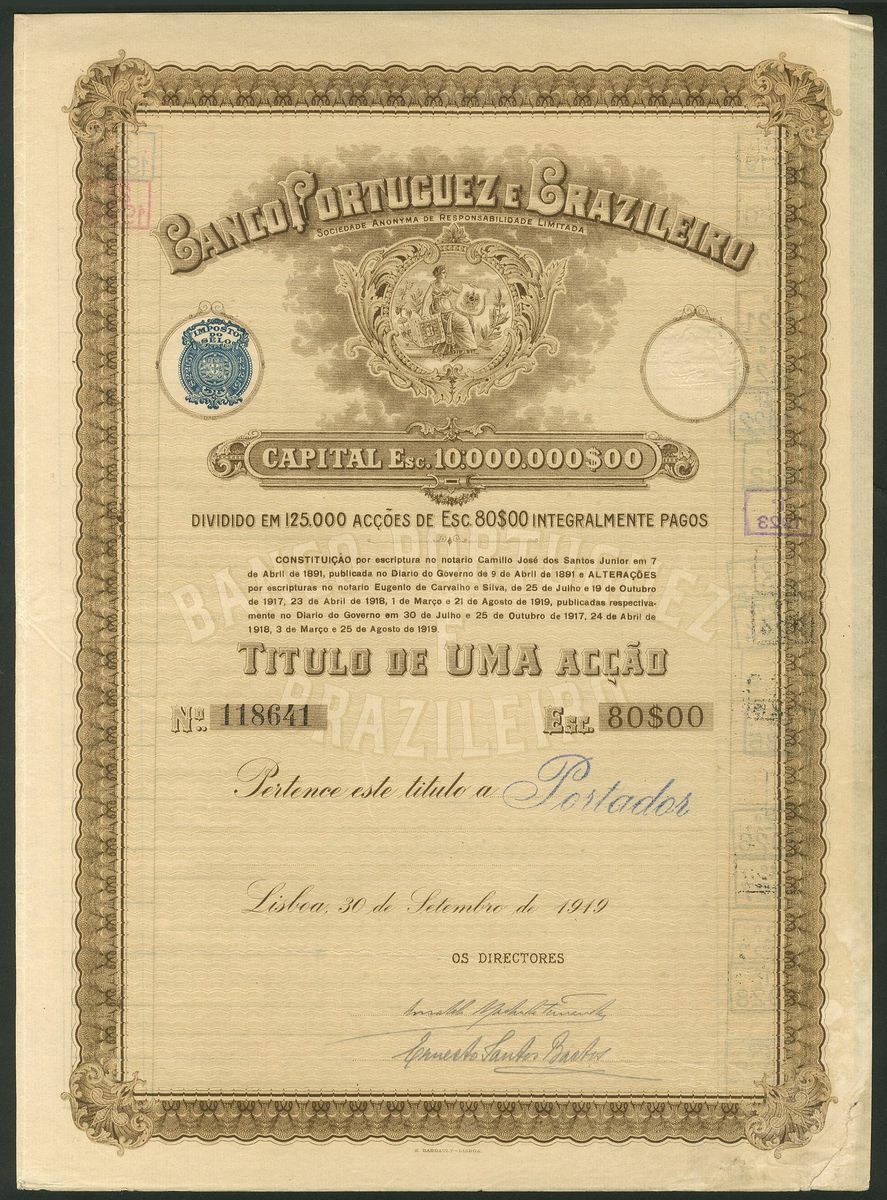 BANCO PORTUGUEZ E BRAZILEIRO
SOCIEDADE ANONYMA DE RESPONSABILIDADE LIMITADA
IMPOSTO
DO
SÊLO
CAPITAL Esc. 10:000.000$00
DIVIDIDO EM 125.000 ACÇÕES DE ESC. 80$00 INTEGRALMENTE PAGOS
CONSTITUIÇÃO por escriptura no notario Camillo José dos Santos Junior em 7
de Abril de 1891, publicada no Diario do Governo de 9 de Abril de 1891 e ALTERAÇÕES
por escripturas no notario Eugenio de Carvalho e Silva, de 25 de Julho e 19 de Outubro
de 1917, 23 de Abril de 1918, 1 de Março e 21 de Agosto de 1919, publicadas respectiva-
mente no Diario do Governo em 30 de Julho e 25 de Outubro de 1917, 24 de Abril de
1918, 3 de Março e 25 de Agosto de 1919.
BANCO PORTUGUEZ
E
BRAZILEIRO
TITULO DE UMA ACÇÃO
Nº. 118641 Esc. 80$00
Pertence este titulo a Portador
Lisboa, 30 de Setembro de 1919
OS DIRECTORES
Ernesto Santos Bastos